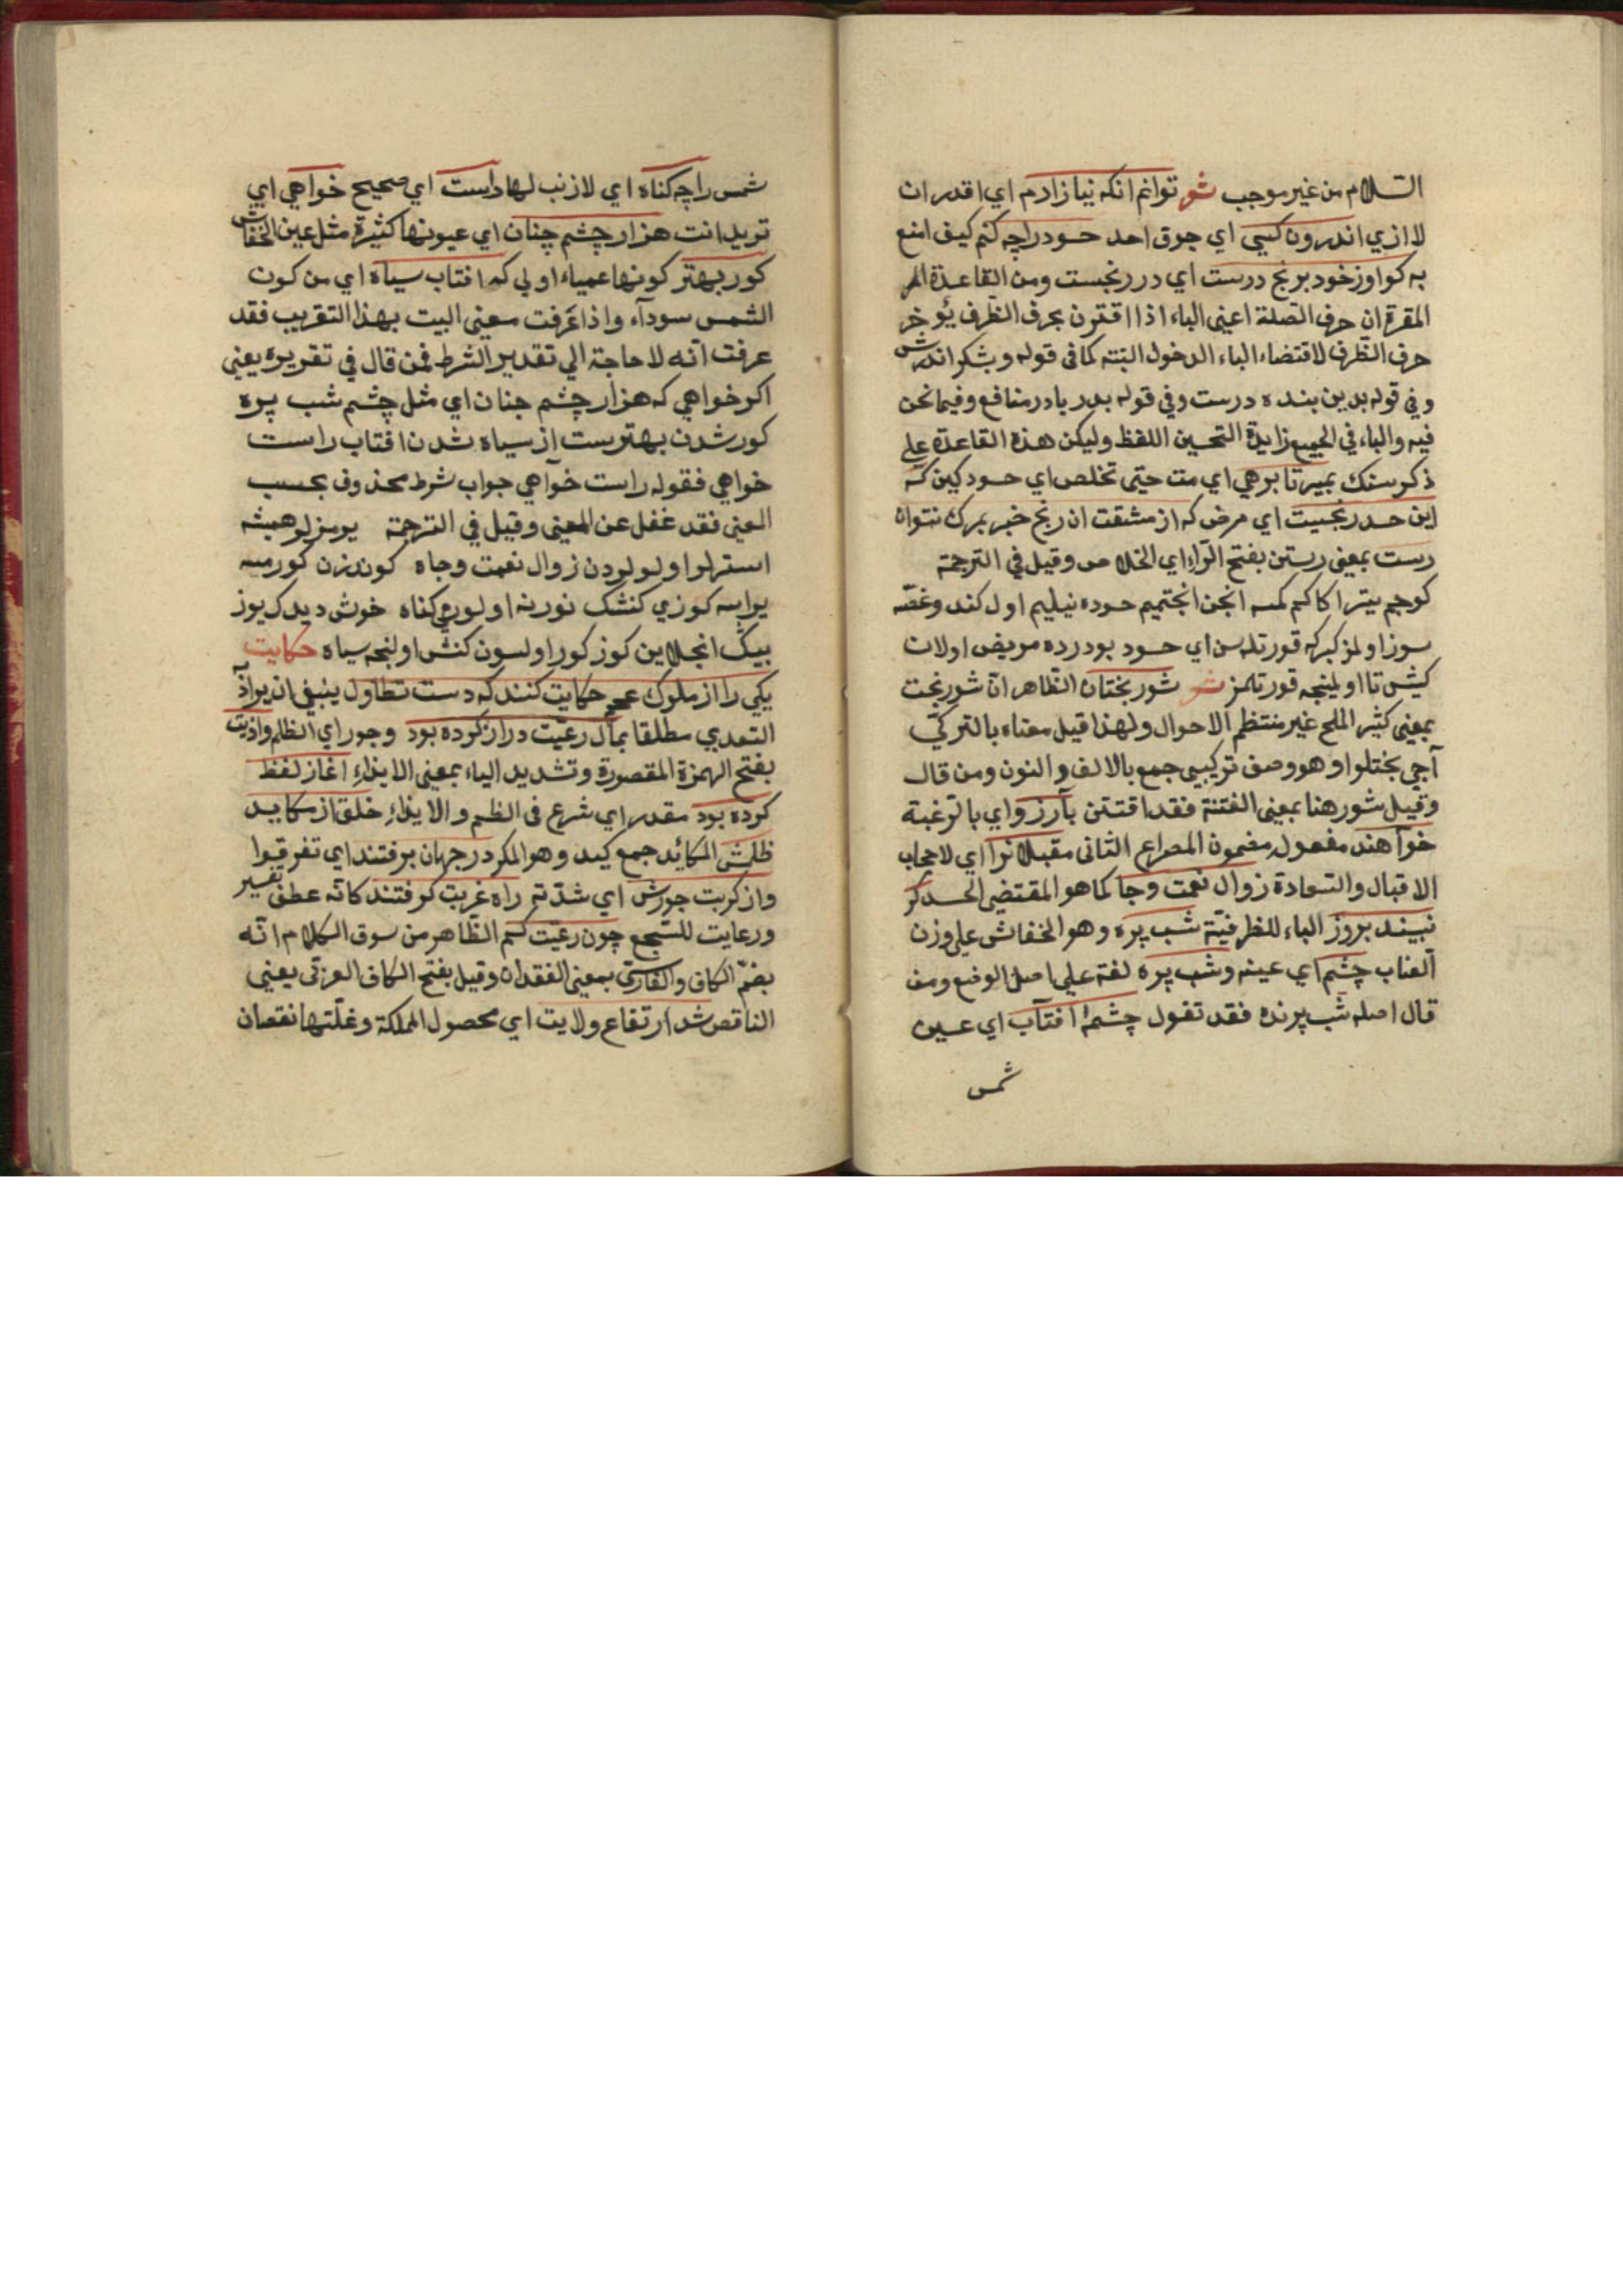 السلام من غير موجب شو توانم انكه نيازارم اي اقدر ان
لا اذي اندرون كسي اي جوق احد حسود را چه كنم كيف امنع
به كو اوز خود برنج درست اي در رنجست ومن القاعدة الم
المقرة ان حرف الصلة اعني الباء اذا اقترن بحرف الظرف يؤخر
حرف الظرف لاقتضاء الباء الدخول البته كما في قوله وبشكر اندرش
وفي قوله بدين بنده درست وفي قوله بدر يا در منافع وفيما نحن
فيه والباء في الجميع زايدة التحسين اللفظ وليكن هذه القاعدة علي
ذكر منك بمير تا برهي اي مت حتي تخلص اي حسود كين كه
اين حسد رنجيست اي مرض كه از مشقت ان رنج خبر بمرك نتوان
رست بمعني رستن بفتح الراء اي الخلاص وقيل في الترجمة
كوجم يتر اكا كم كمسه انجن انجتميم حسوده نيليم اول كند وغصه
سوز اولمز كبركه قورتله سن اي حسود بو درده مريض اولان
كيش تا اولينجه قورتلمز شو شور بختان الظاهر ان شور بخت
بمعني كثير الملح غير منتظم الاحوال ولهذا قيل معناه بالتركي
آجي بختلو او هو وصف تركيبي جمع بالالف والنون ومن قال
وقيل شور هنا بمعني الفتنة فقد اقتتن بآرزو اي بالرغبة
خوآهند مفعوله مضمون المصراع الثاني مقبلانرا اي لاصحاب
الاقبال والسعادة زوال نعمت وجا كما هو المقتضي الحسد كر
نبيند بروز الباء للظرفية شب پره وهو الخفاش علي وزن
العناب چشم اي عينه وشب پره لغة علي اصل الوضع ومن
قال اصله شب پرنده فقد تقول چشمهٔ افتآب اي عين
شمس
شمس را چه كناه اي لا ذنب لها راست اي صحيح خواهي اي
تريد انت هزار چشم چنان اي عيونها كثيرة مثل عين الخفاش
كور بهتر كونها عمياء اولي كه افتاب سياه اي من كون
الشمس سودآء واذا عرفت معني البيت بهذا التقريب فقد
عرفت انه لا حاجة الي تقدير الشرط فمن قال في تقريره يعني
اكر خواهي كه هزار چشم چنان اي مثل چشم شب پره
كور شدن بهترست از سياه شدن افتاب راست
خواهي فقوله راست خوآهي جواب شرط محذوف بحسب
المعني فقد غفل عن المعني وقيل في الترجمة يرمزلر هميشه
استرلر اولولردن زوال نعمت وجاه كوندزن كورمسه
يراسه كوزي كنشك نورينه اولورمي كناه خوش ديدك يوز
بيك انجلاين كوز كور اولسون كنش اولنجه سياه حكايت
يكي را از ملوك عجم حكايت كنند كه دست تطاول ينبغي ان يراد
التعدي مطلقا بمال رعيت دراز كرده بود وجور اي الظلم واذيت
بفتح الهمزة المقصورة وتشديد الياء بمعني الايذاء اغاز لفظ
كرده بود مقدر اي شرع في الظلم والايذاء خلق از مكايد
ظلمش المكائد جمع كيد وهو المكر در جهان برفتند اي تفرقوا
واز كربت جورش اي شدته راه غربت كرفتند كانه عطف تفسير
ورعايت للسجع چون رعيت كم الظاهر من سوق الكلام انه
بضم الكاف والفارسي بمعني الفقدان وقيل بفتح الكاف العربي يعني
الناقص شد ارتفاع ولايت اي محصول المملكة وغلتها نقصان